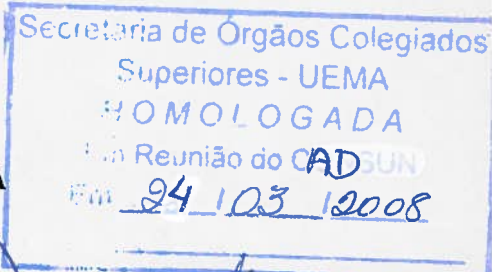 Secretaria de Órgãos Colegiados
Superiores - UEMA
HOMOLOGADA
Em Reunião do CAD
Em 24 / 03 / 2008